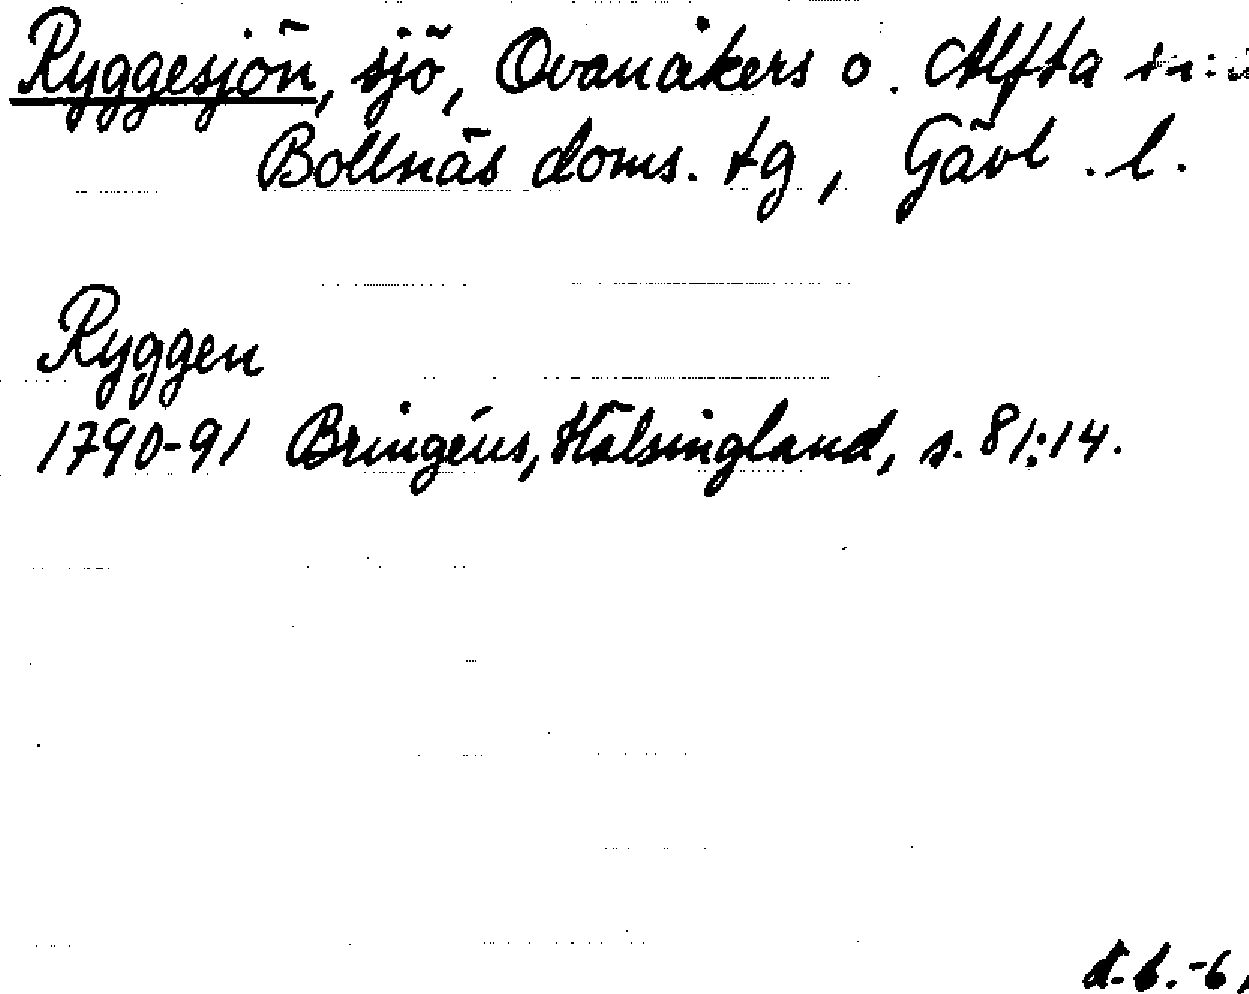 Ryggesjön, sjö, Ovanåkers o. Alfta sn:r
Bollnäs doms. tg, Gävl. l.
Ryggen
1790-91 Bringéus, Hälsingland, s. 81:14.